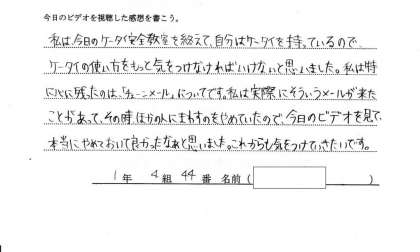 今日のビデオを視聴した感想を書こう。
私は、今日のケータイ安全教室を終えて、自分はケータイを持っているので、
ケータイの使い方をもっと気をつけなければいけないと思いました。私は特
に心に残ったのは、「チェーンメール」についてです。私は実際にそういうメールが来た
ことがあって、その時ほかの人にまわすのをやめていたので、今日のビデオを見て、
本当にやめておいて良かったなぁと思いました。これからも気をつけていきたいです。
1年 4組 44番 名前( )